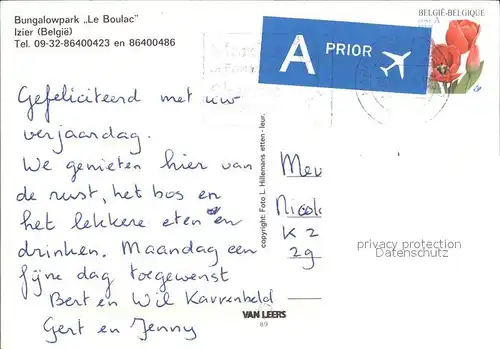 Bungalowpark „Le Boulac"
Izier (België)
Tel. 09-32-86400423 en 86400486
BELGIË-BELGIQUE
A
A PRIOR
Gefeliciteerd met uw
verjaardag.
We genieten hier van
de rust, het bos en
het lekkere eten en
drinken. Maandag een
fijne dag toegewenst
Bert en Wil Karrenbeld
Gert en Jenny
copyright: Foto L. Hillemans etten - leur.
VAN LEERS
89
Mev
Nicol
K 2
29
privacy protection
Datenschutz